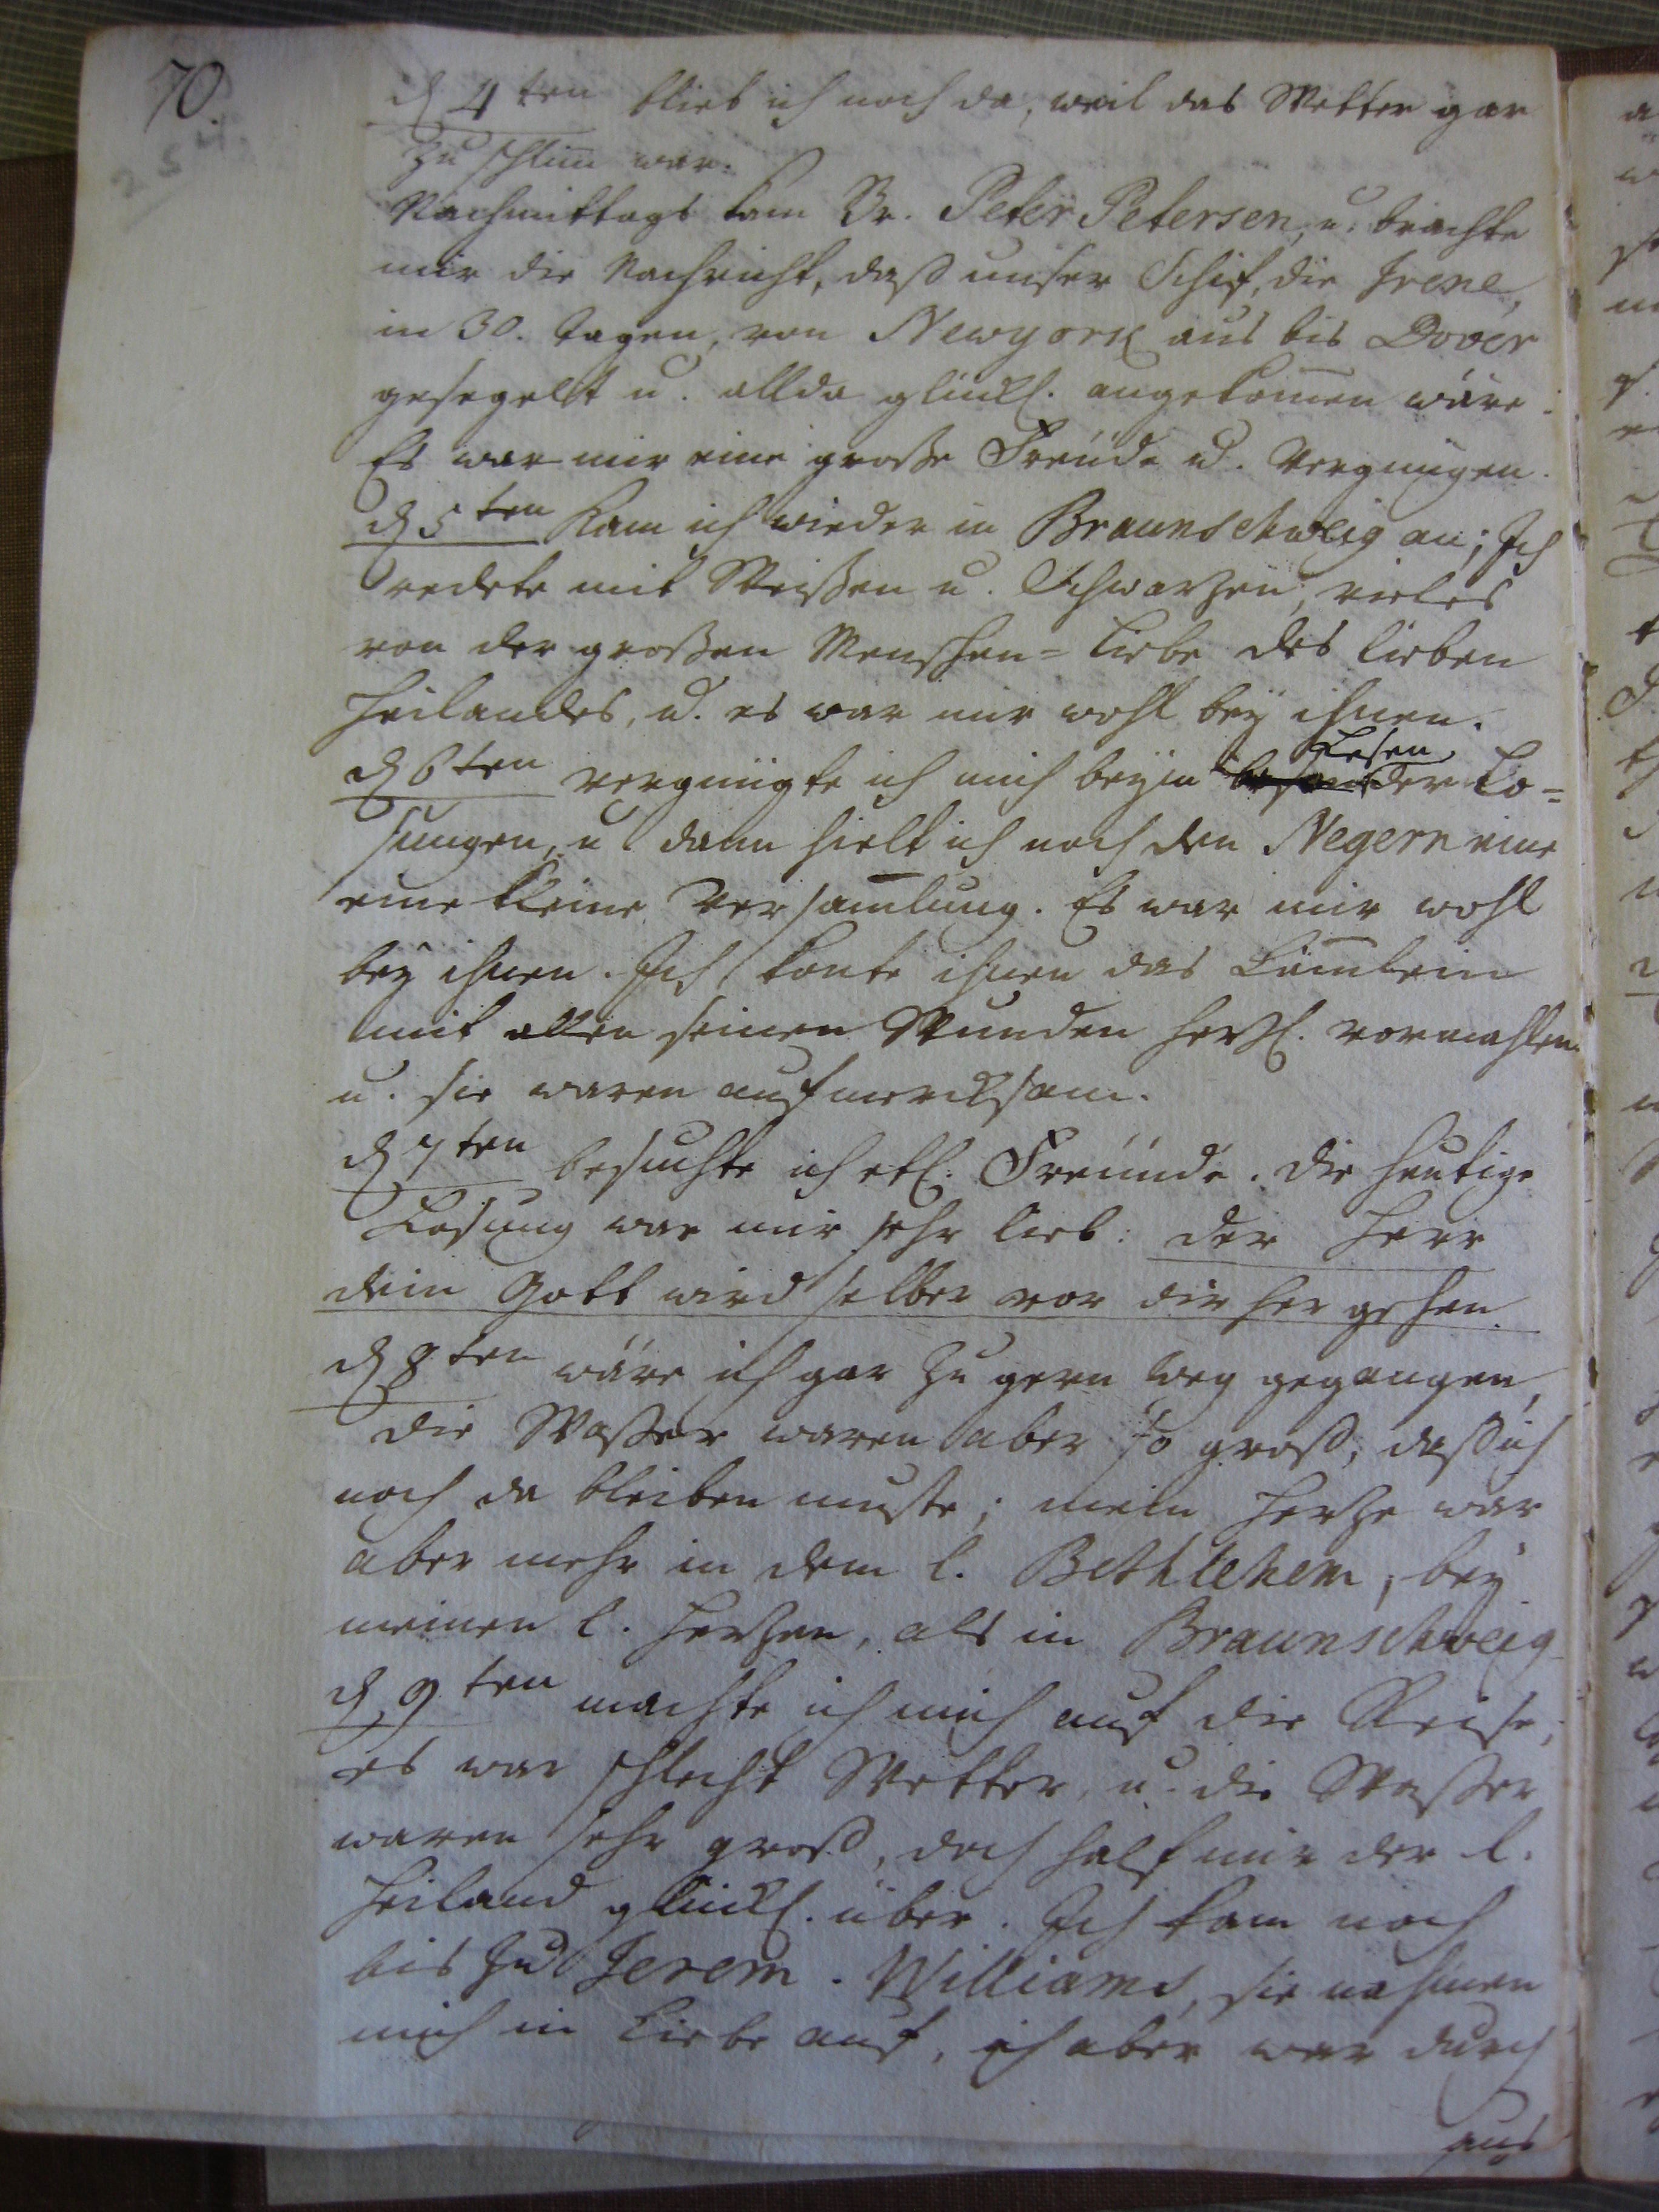 70.
254.
d 4ten blieb ich noch da, weil das Wetter gar
zu schlim̅ war.
Nachmittags kam Br. Peter Petersen, u. brachte
mir die Nachricht, daß unser Schif, die Irene,
in 30. Tagen, von Newyork aus bis Dover
gesegelt u. allda glückl. angekom̅en wäre.
Es war mir eine große Freüde u. Vergnügen.
d 5ten kam ich wieder in Braunschweig an; Ich
redete mit Weißen u. Schwarzen, vieles
von der großen Menschen-Liebe des lieben
Heilandes, u. es war mir wohl beÿ ihnen.
Lesen
d 6ten vergnügte ich mich beÿm der Lo=
sungen, u dann hielt ich noch den Negern eine
eine kleine Versam̅lung. Es war mir wohl
beÿ ihnen. Ich konte ihnen das Läm̅lein
mit allen seinen Wunden herzl. vormahlen
u. sie waren aufmercksam.
d 7ten besuchte ich etl. Freünde. Die heutige
Losung war mir sehr lieb: Der Herr
dein Gott wird selber vor dir her gehen.
d 8ten wäre ich gar zu gern weg gegangen,
die Waßer waren aber so groß, daß ich
noch da bleiben muste; mein Herze war
aber mehr in dem l. Bethlehem, beÿ
meinen l. Herzen, als in Braunschweig
d 9ten machte ich mich auf die Reise,
es war schlecht Wetter, u. die Waßer
waren sehr groß, doch half mir der l.
Heiland glückl. über. Ich kam noch
bis zu Jerem. Williams, sie nahmen
mich in Liebe auf, ich aber war durch
aus